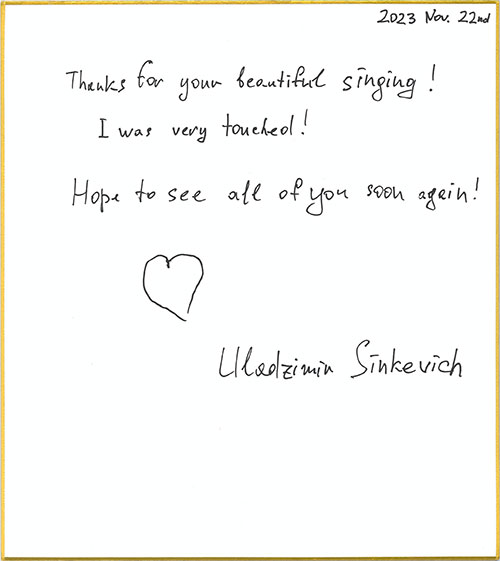 2023 Nov. 22nd
Thanks for your beautiful singing!
I was very touched!
Hope to see all of you soon again!
Uladzimir Sinkevich